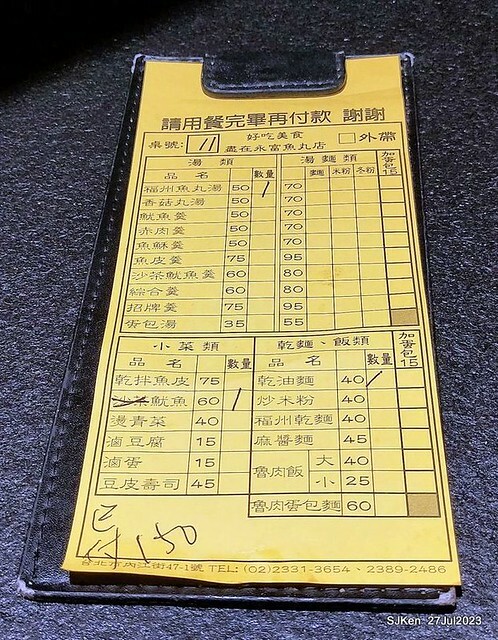 請用餐完畢再付款 謝謝
桌號: 11 好吃美食 盡在永富魚丸店 □外帶
湯類 湯麵類 加蛋包15
品名 數量 麵 米粉 冬粉
福州魚丸湯 50 / 70
香菇丸湯 50 70
魷魚羹 50 70
赤肉羹 50 70
魚酥羹 50 70
魚皮羹 75 95
沙茶魷魚羹 60 80
綜合羹 60 80
招牌羹 75 95
蛋包湯 35 55
小菜類 乾麵、飯類 加蛋包15
品名 數量 品名 數量
乾拌魚皮 75 乾油麵 40 /
沙茶魷魚 60 / 炒米粉 40
燙青菜 40 福州乾麵 40
滷豆腐 15 麻醬麵 45
滷蛋 15 魯肉飯 大 40
豆皮壽司 45 小 25
魯肉蛋包麵 60
已付150
台北市內江街47-1號 TEL: (02)2331-3654、2389-2486
SJKen 27Jul2023